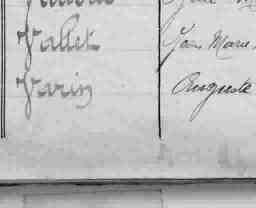 Vallet Jean Marie
Varin Auguste